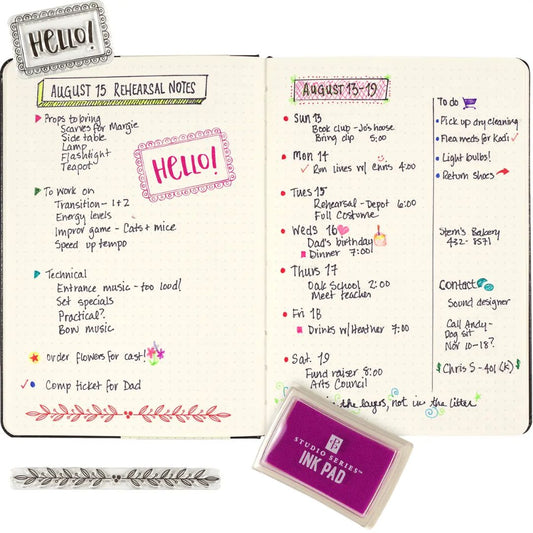 HELLO!
AUGUST 15 REHEARSAL NOTES
Props to bring
Scarves for Margie
Side table
Lamp
Flashlight
Teapot
HELLO!
To work on
Transition - 1+2
Energy levels
Improv game - Cats + mice
Speed up tempo
Technical
Entrance music - too loud!
Set specials
Practical?
Bow music
order flowers for cast!
Comp ticket for Dad
AUGUST 13-19
Sun 13
Book club - Jo's house
Bring dip 5:00
Mon 14
Run lines w/ Chris 4:00
Tues 15
Rehearsal - Depot 6:00
Full Costume
Weds 16
Dad's birthday
Dinner 7:00!
Thurs 17
Oak School 2:00
Meet teacher
Fri 18
Drinks w/Heather 7:00
Sat. 19
Fund raiser 8:00
Arts Council
in the layers, not in the litter
To do
Pick up dry cleaning
Flea meds for Kodi
Light bulbs!
Return shoes
Stern's Bakery
432-8571
Contact
Sound designer
Call Andy-
Dog sit
Nov 10-18?
$ Chris S - 401(k) $
STUDIO SERIES™
INK PAD